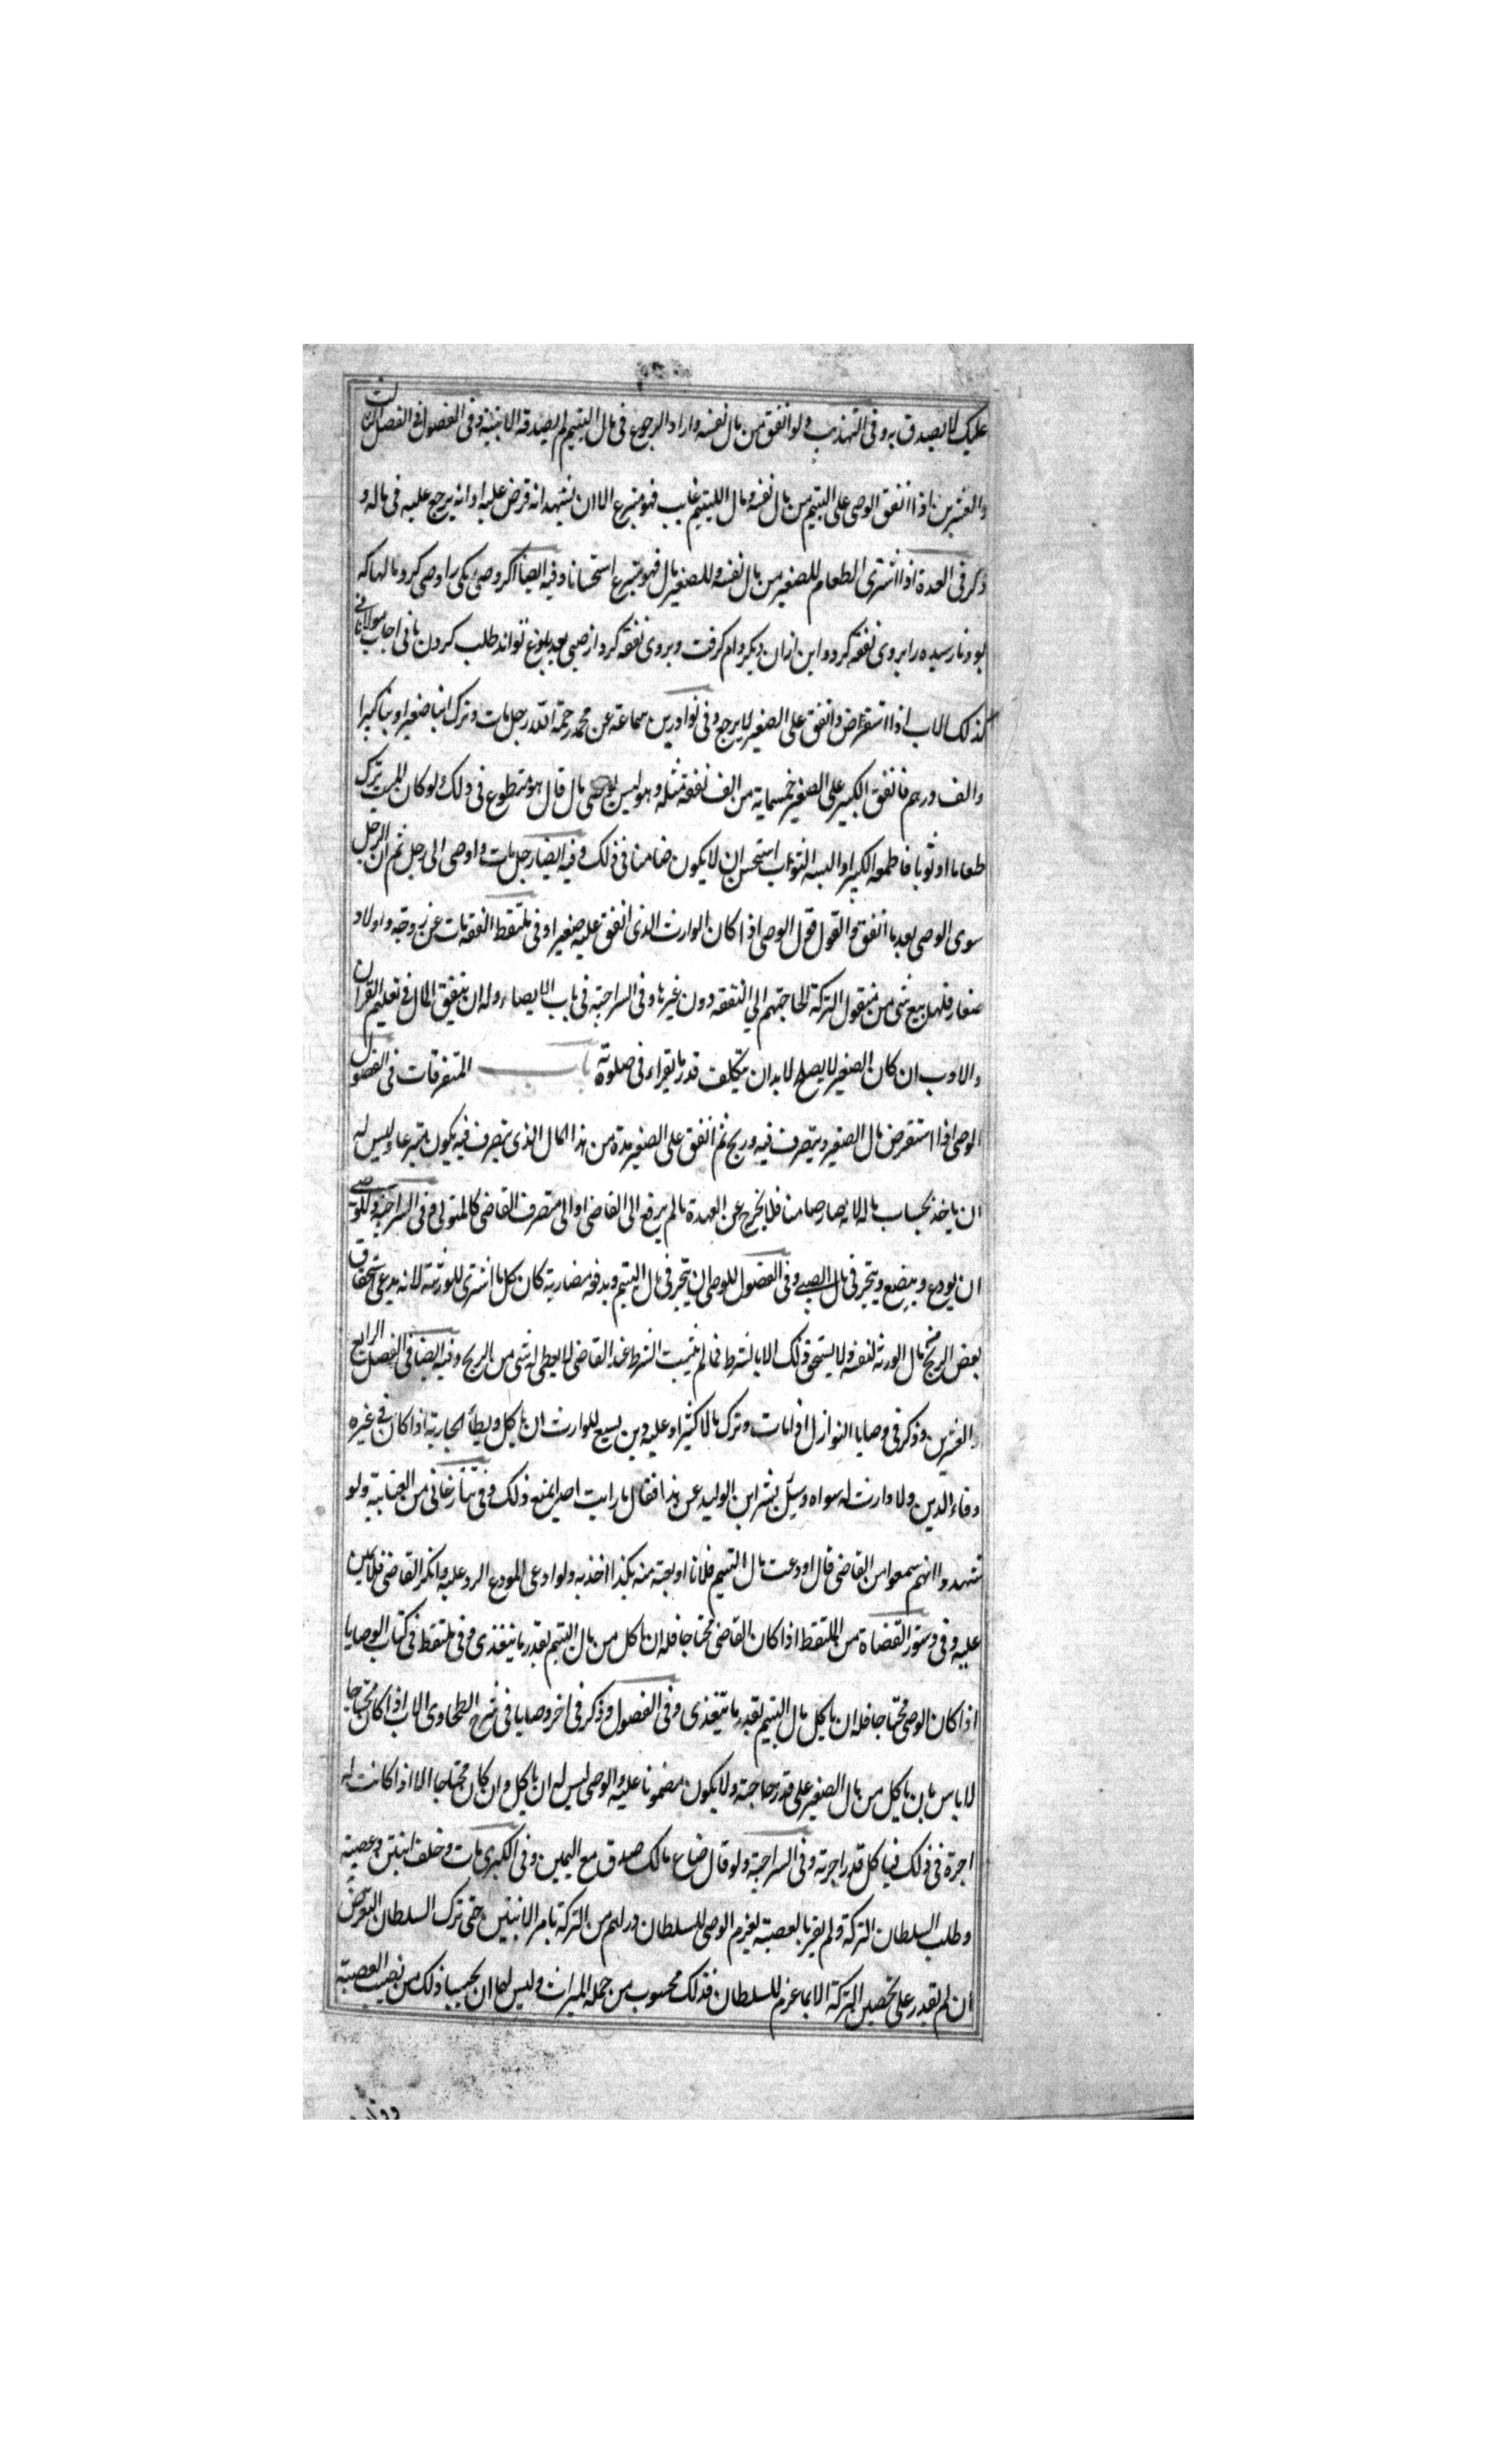 عليك لا يصدق به وفى التهذيب ولو انفق من مال نفسه واراد الرجوع فى مال اليتيم لم يصدقه الا ببينة وفى الفصول فى الفصل الثالث
والعشرين اذا انفق الوصى على اليتيم من مال نفسه ومال اليتيم غايب فهو متبرع الا ان يشهد انه قرض عليه او انه يرجع عليه فى ماله و
ذكر فى العدة اذا اشترى الطعام للصغير من مال نفسه وللصغير مال فهو متبرع استحسانا وفيه ايضا اكر وصى يكى را وصى كرد مالها كه
بود نارسيده را بروى نفقه كرد واين ازان ديكر وام كرفت وبروى نفقه كرد از صبى بعد بلوغ تواند طلب كردن يا نى اجاب مولانا نى
كذلك الاب اذا استقرض وانفق على الصغير لا يرجع وفى نوادر بن سماعة عن محمد رحمة الله رجل مات وترك ابنا صغيرا وابنا كبيرا
والف درهم فانفق الكبير على الصغير خمسماية من الف نفقة مثله وهو ليس بوصى مال قال هو متطوع فى ذلك ولو كان الميت ترك
طعاما او ثوبا فاطعمه الكبير او البسه الثوب استحسن ان لا يكون ضامنا فى ذلك وفيه ايضا رجل مات واوصى الى رجل ثم ان الرجل
سوى الوصى بعد ما انفق فالقول قول الوصى اذا كان الوارث الذى انفق عليه صغيرا وفى ملتقط النفقه مات عن زوجه واولاد
صغار فلهن بيع شى من منقول التركة لحاجتهم الى النفقه دون غيرها وفى السراجية فى باب الايصاء وله ان ينفق المال فى تعليم القران
والادب ان كان الصغير لا يصلح لا بد ان يتكلف قدر ما يقراء فى صلوته باب المتفرقات فى الفصول
الوصى اذا استقرض مال الصغير ويتصرف فيه وربح ثم انفق على الصغير مدة من هذا المال الذى يتصرف فيه يكون متبرعا وليس له
ان ياخذ بحساب ماله لانه صار ضامنا فلا يخرج عن العهدة ما لم يرفع الى القاضى او الى متصرف القاضى كالمتولى وفى السراجية وللوصى
ان يودع ويبضع ويتجر فى مال الصبى وفى الفصول للوصى ان يتجر فى مال اليتيم ويدفع مضاربة كان كل ما اشترى للورثة لانه يدعى استحقاق
بعض الربح من مال الورثة لنفسه ولا يستحق ذلك الا بالشرط فما لم يثبت الشرط عند القاضى لا يعطى له شى من الربح وفيه ايضا فى الفصل الرابع
والعشرين وذكر فى وصايا النوازل اذا مات وترك مالا كثيرا وعليه دين يسع للوارث ان ياكل ويطأ الجارية اذا كان فى غيره
وفاء الدين ولا وارث له سواه وسئل بشر ابن الوليد عن هذا فقال ما رايت احدا يمنع ذلك وفى تتارخانى من العتابية ولو
شهدوا انهم سمعوا من القاضى قال اودعت مال اليتيم فلانا او بعته منه بكذا اخذ به ولو ادعى المودع الرد عليه وانكر القاضى فلا يمين
عليه وفى دستور القضاة من الملتقط اذا كان القاضى محتاجا فله ان ياكل من مال اليتيم بقدر ما يتغذى وفى ملتقط فى كتاب الوصايا
اذا كان الوصى محتاجا فله ان ياكل مال اليتيم بقدر ما يتغذى وفى الفصول وذكر فى اخر وصايا فى شرح الطحاوى الاب اذا كان محتاجا
لا باس بان ياكل من مال الصغير على قدر حاجته ولا يكون مضمونا عليه والوصى ليس له ان ياكل وان كان محتاجا الا اذا كانت له
اجرة فى ذلك فياكل قدر اجرته وفى السراجية ولو قال ضاع مالك صدق مع اليمين وفى الكبرى مات وخلف ابنتين وعصبته
وطلب السلطان التركة ولم يقر بالعصبته يغرم الوصى للسلطان دراهم من التركة بامر الابنتين حتى ترك السلطان التعرض
ان لم يقدر على تحصين التركة الا بما غرم للسلطان فذلك محسوب من جملة الميراث وليس لهما ان يحسبا ذلك من نصيب العصبته